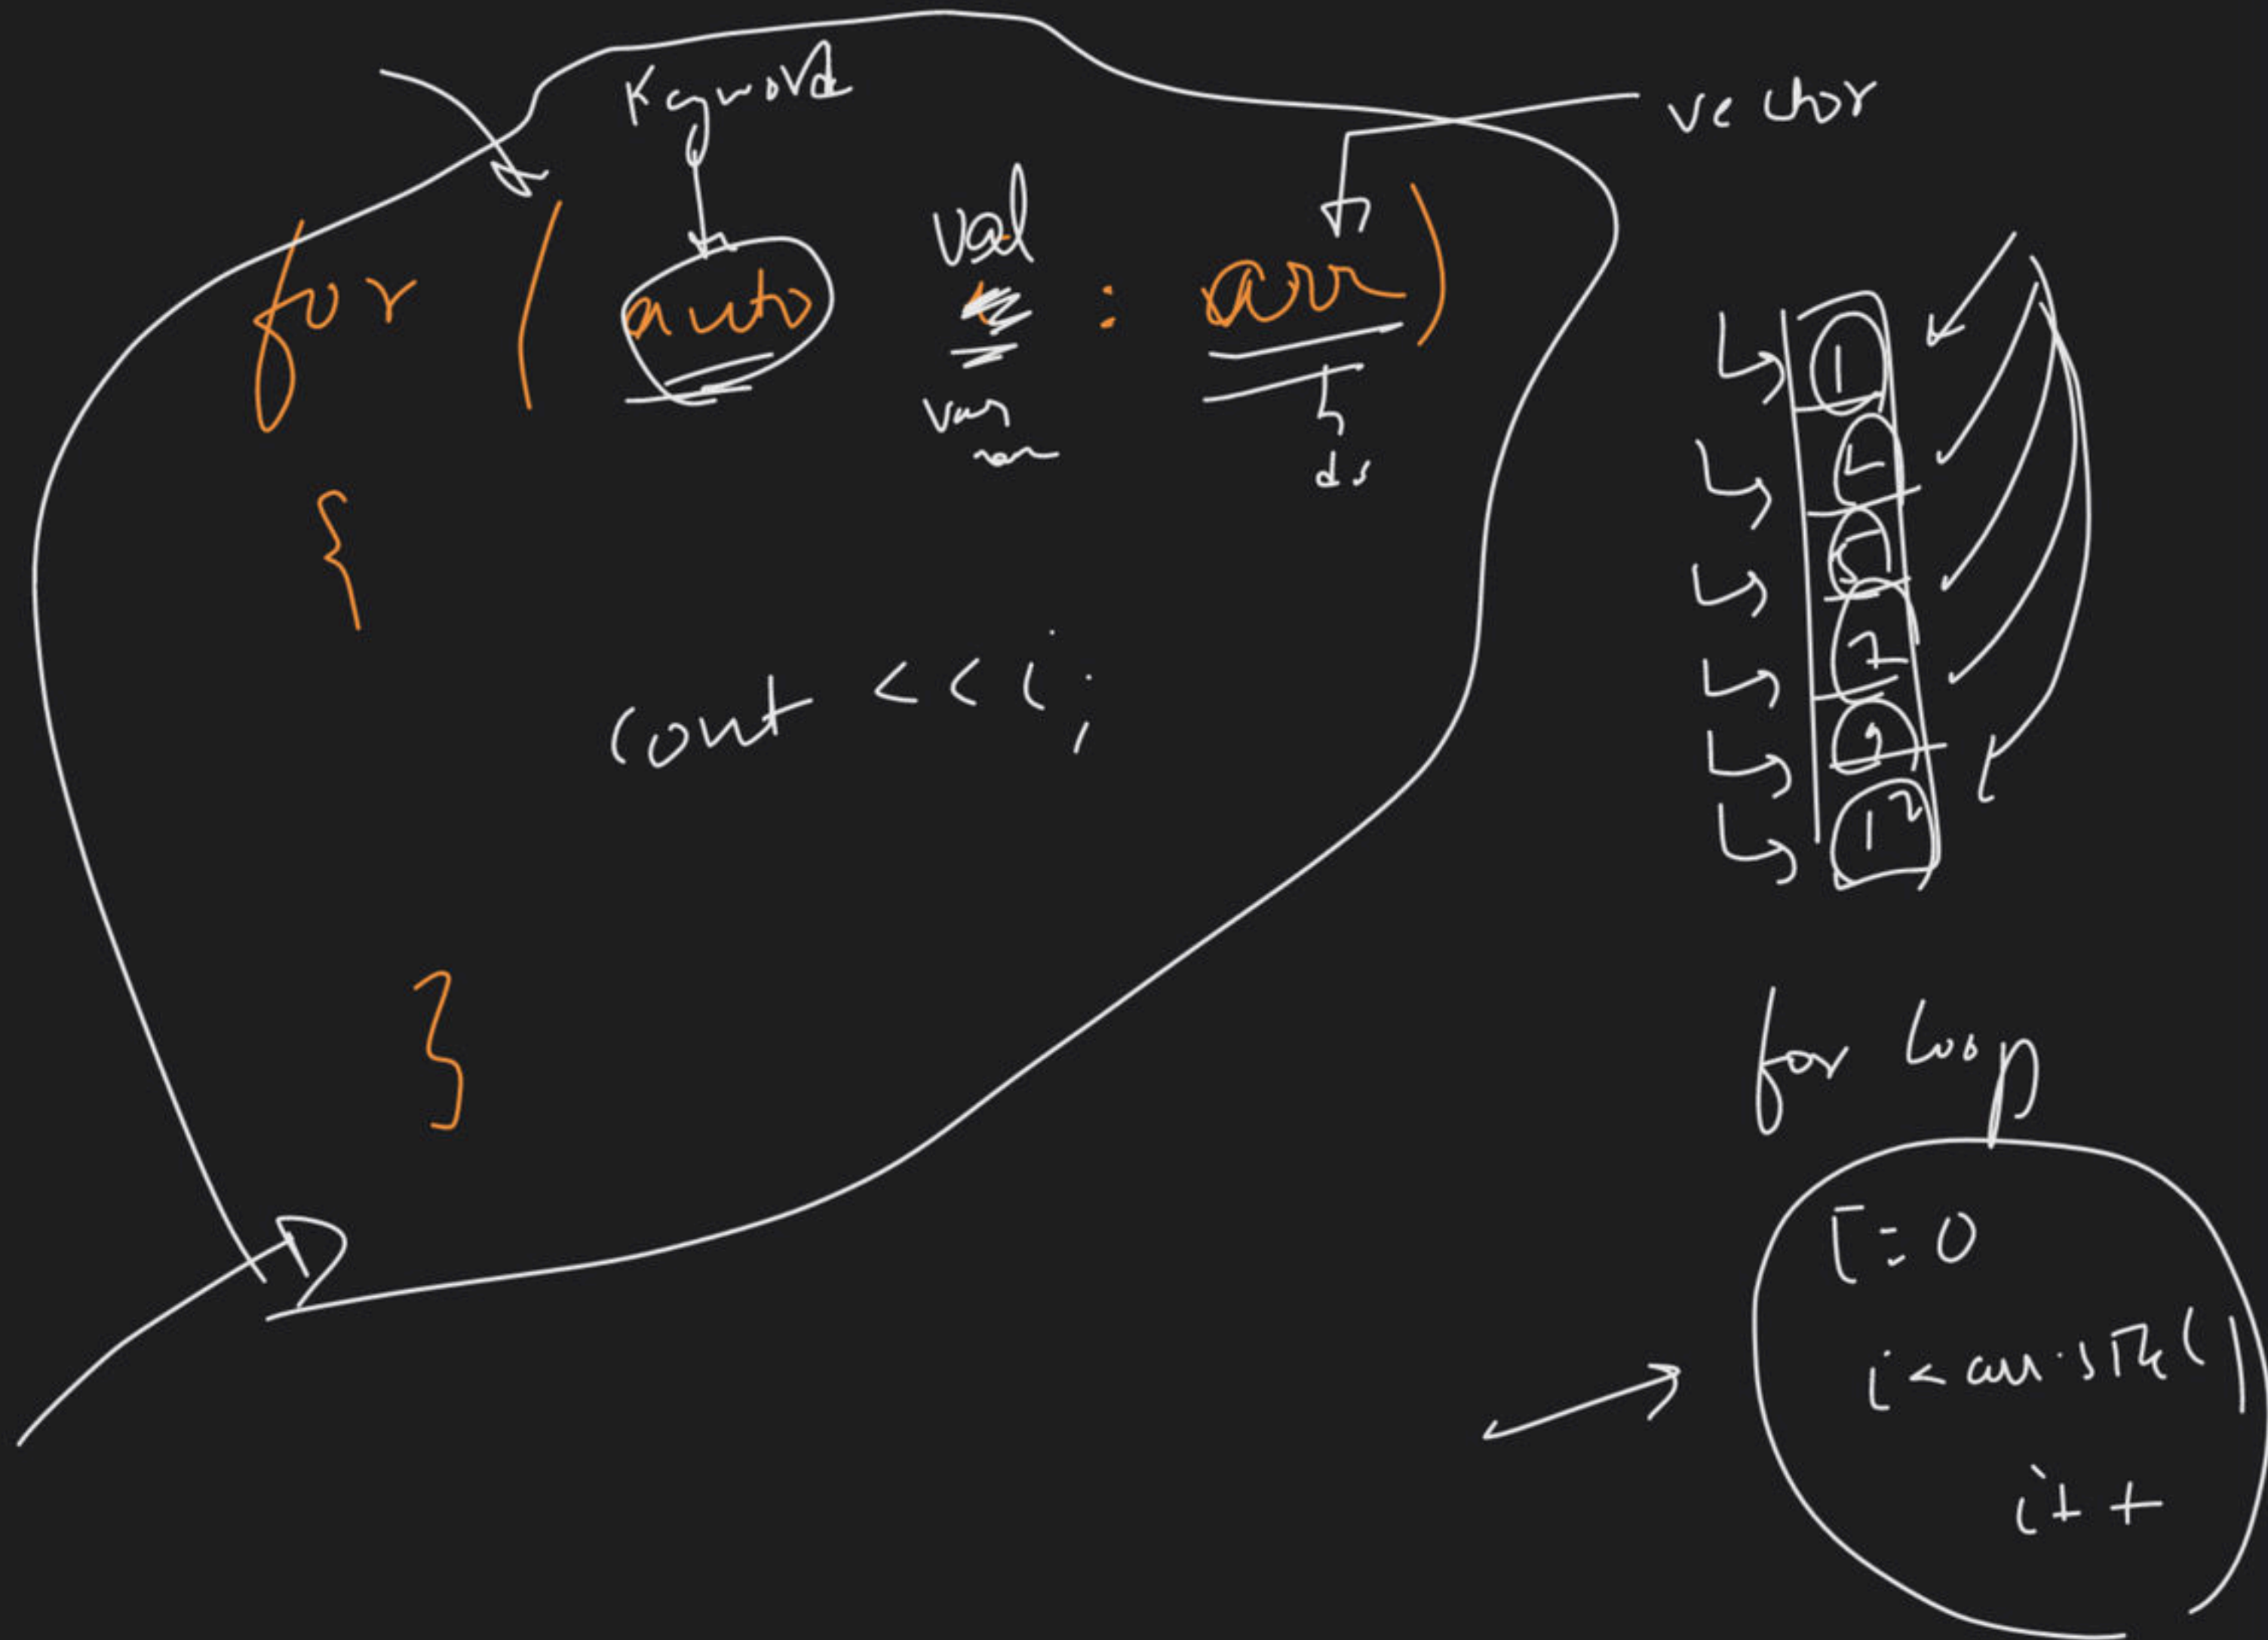 Keyword
vector
val
for ( auto : arr )
var
ds
{
cout << i;
}
1
5
7
9
12
for loop
i = 0
i < arr.size()
i++